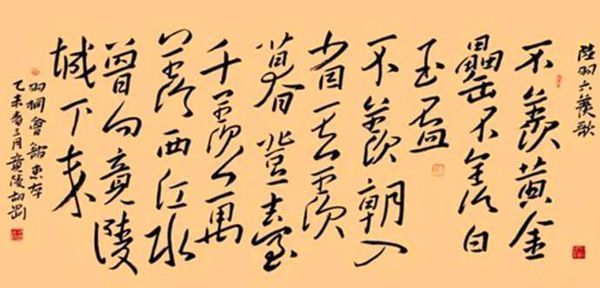 陸羽六羨歌
不羨黃金
罍不羨白
玉盃
不羨朝入
省不羨
暮登臺
千羨萬
羨西江水
曾向竟陵
城下来
羽桐會館惠存
乙未春三月竟陵